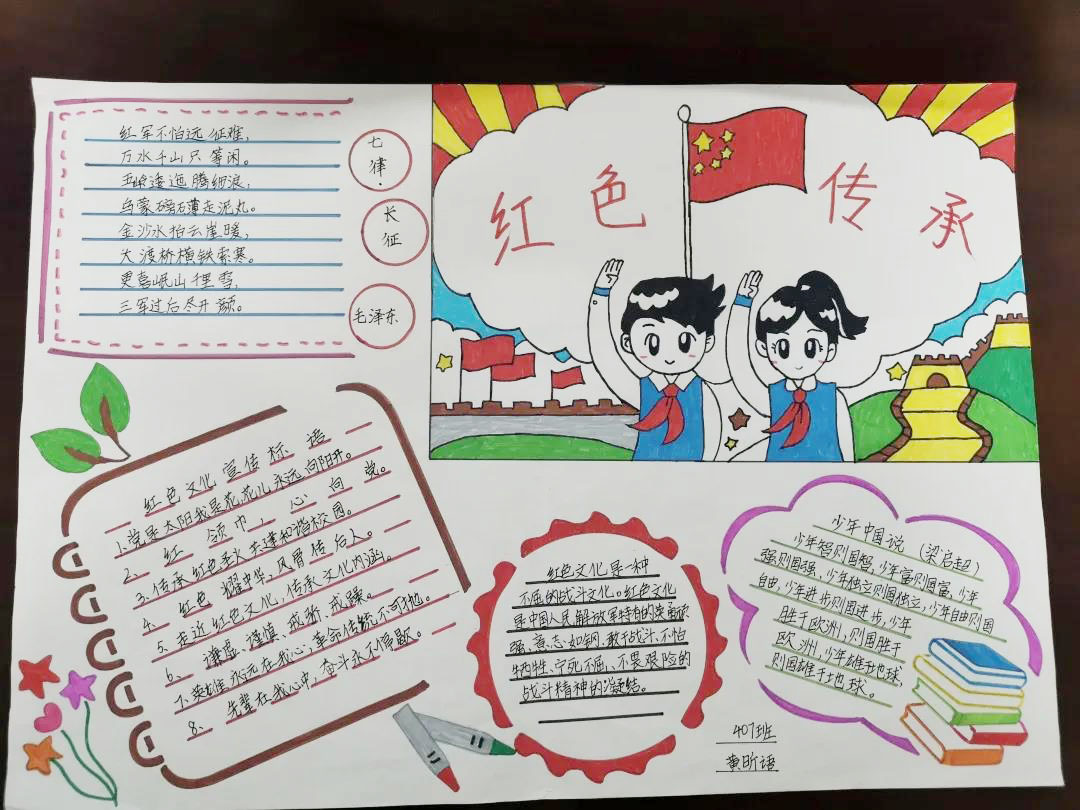 红色传承
红军不怕远征难,
万水千山只等闲。
五岭逶迤腾细浪,
乌蒙磅礴走泥丸。
金沙水拍云崖暖,
大渡桥横铁索寒。
更喜岷山千里雪,
三军过后尽开颜。
七律·
长征
毛泽东
红色文化宣传标语
1.党是太阳我是花,花儿永远向阳开。
2、红领巾,心向党。
3.传承红色圣火,共建和谐校园。
4、红色耀中华,风骨传后人。
5.走近红色文化,传承文化内涵。
6、谦虚、谨慎、戒骄、戒躁。
7.英雄永远在我心,革命传统不可抛。
8、先辈在我心中,奋斗永不停歇。
红色文化是一种
不屈的战斗文化。红色文化
是中国人民解放军特有的
强、意志如钢、敢于战斗、不怕
牺牲、宁死不屈、不畏艰险的
战斗精神的凝结。
少年中国说(梁启超)
少年智则国智,少年富则国富,少年
强则国强,少年独立则国独立,少年自由则国
自由,少年进步则国进步,少年
胜于欧洲,则国胜于
欧洲,少年雄于地球,
则国雄于地球。
407班
黄昕语